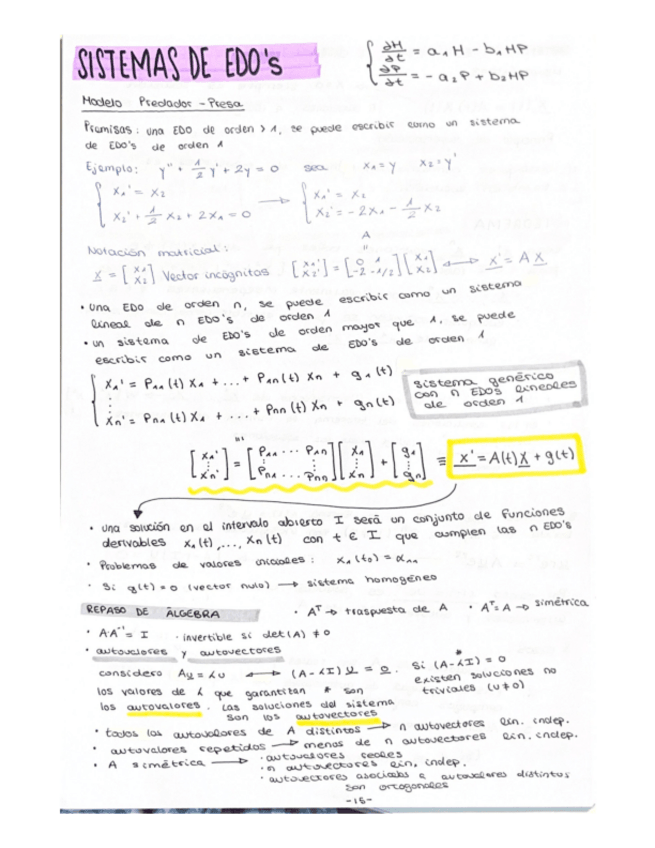 SISTEMAS DE EDO's
∂H/∂t = a₁H - b₁HP
∂P/∂t = -a₂P + b₂HP
Modelo Predador - Presa
Premisas: una EDO de orden > 1, se puede escribir como un sistema
de EDO's de orden 1
Ejemplo: y'' + 1/2 y' + 2y = 0 sea x₁ = y x₂ = y'
{ x₁' = x₂ → { x₁' = x₂
x₂' + 1/2 x₂ + 2x₁ = 0 x₂' = -2x₁ - 1/2 x₂
A
Notación matricial: "
x = [x₁ x₂] Vector incógnitas [x₁' x₂'] = [0 1 -2 -1/2] [x₁ x₂] ↔ x' = A x
• Una EDO de orden n, se puede escribir como un sistema
lineal de n EDO's de orden 1
• un sistema de EDO's de orden mayor que 1, se puede
escribir como un sistema de EDO's de orden 1
{ x₁' = P₁₁(t) x₁ + ... + P₁n(t) xn + g₁(t)
⋮
xn' = Pn₁(t) x₁ + ... + Pnn(t) xn + gn(t)
sistema genérico
con n EDOS lineales
de orden 1
[x₁' ⋮ xn'] = [P₁₁ ... P₁n ⋮ Pn₁ ... Pnn] [x₁ ⋮ xn] + [g₁ ⋮ gn] ≡ x' = A(t)x + g(t)
• una solución en el intervalo abierto I será un conjunto de funciones
derivables x₁(t),..., xn(t) con t ∈ I que cumplen las n EDO's
• Problemas de valores iniciales: x₁(t₀) = α₁,
• Si g(t) = 0 (vector nulo) → sistema homogéneo
REPASO DE ÁLGEBRA • Aᵀ → traspuesta de A • Aᵀ = A → simétrica
• A·A⁻¹ = I · invertible si det(A) ≠ 0
• autovalores y autovectores
considero Au = λu ↔ (A-λI) u = 0. Si (A-λI) = 0
existen soluciones no
triviales (u≠0)
los valores de λ que garantizan * son
los autovalores. Las soluciones del sistema
son los autovectores
• todos los autovalores de A distintos → n autovectores lin. indep.
• autovalores repetidos → menos de n autovectores lin. indep.
• A simétrica → · autovalores reales
· n autovectores lin. indep.
· autovectores asociados a autovalores distintos
son ortogonales
-15-